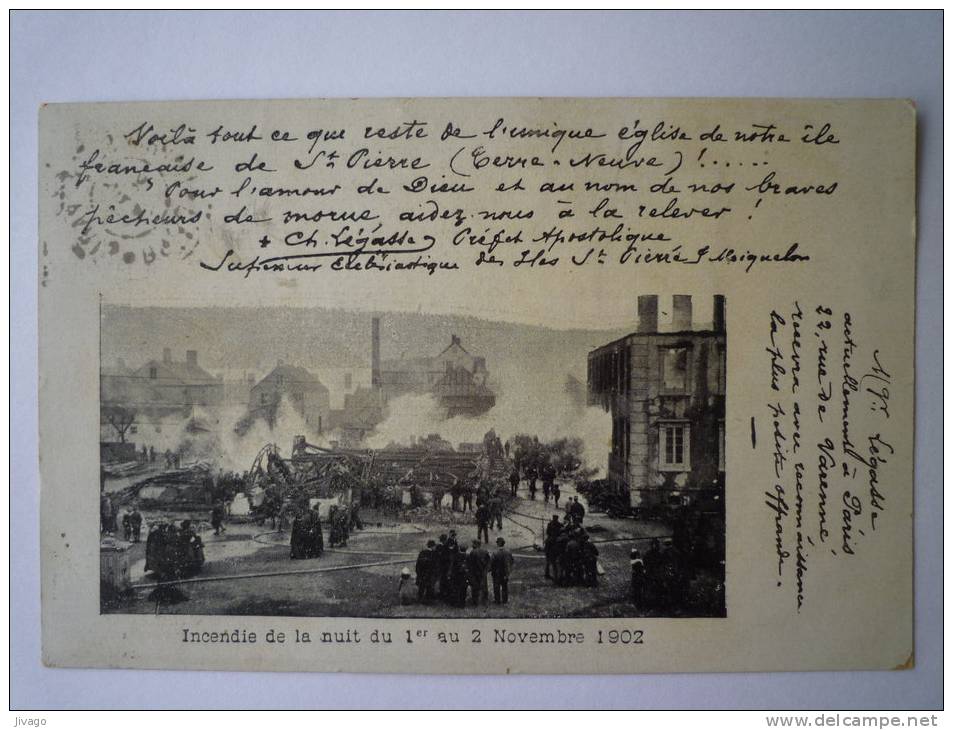 Voilà tout ce que reste de l'unique église de notre île
française de St Pierre (Terre-Neuve)!......
Pour l'amour de Dieu et au nom de nos braves
pêcheurs de morue, aidez-nous à la relever !
+ Ch. Légasse, Préfet Apostolique
Supérieur Ecclésiastique des Iles St Pierre & Miquelon
Mgr. Légasse
actuellement à Paris
22, rue de Varenne,
recevra avec reconnaissance
la plus petite offrande.
Incendie de la nuit du 1er au 2 Novembre 1902
Jivago
www.delcampe.net